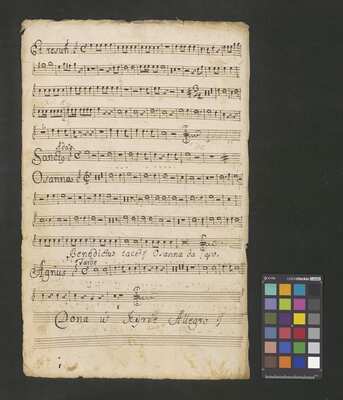 Et resur:
Adag:
Sanctg
Osanna
Benedictus tacet Osanna da Capo.
Tarde
Agnus
Dona ut Kyrie Allegro